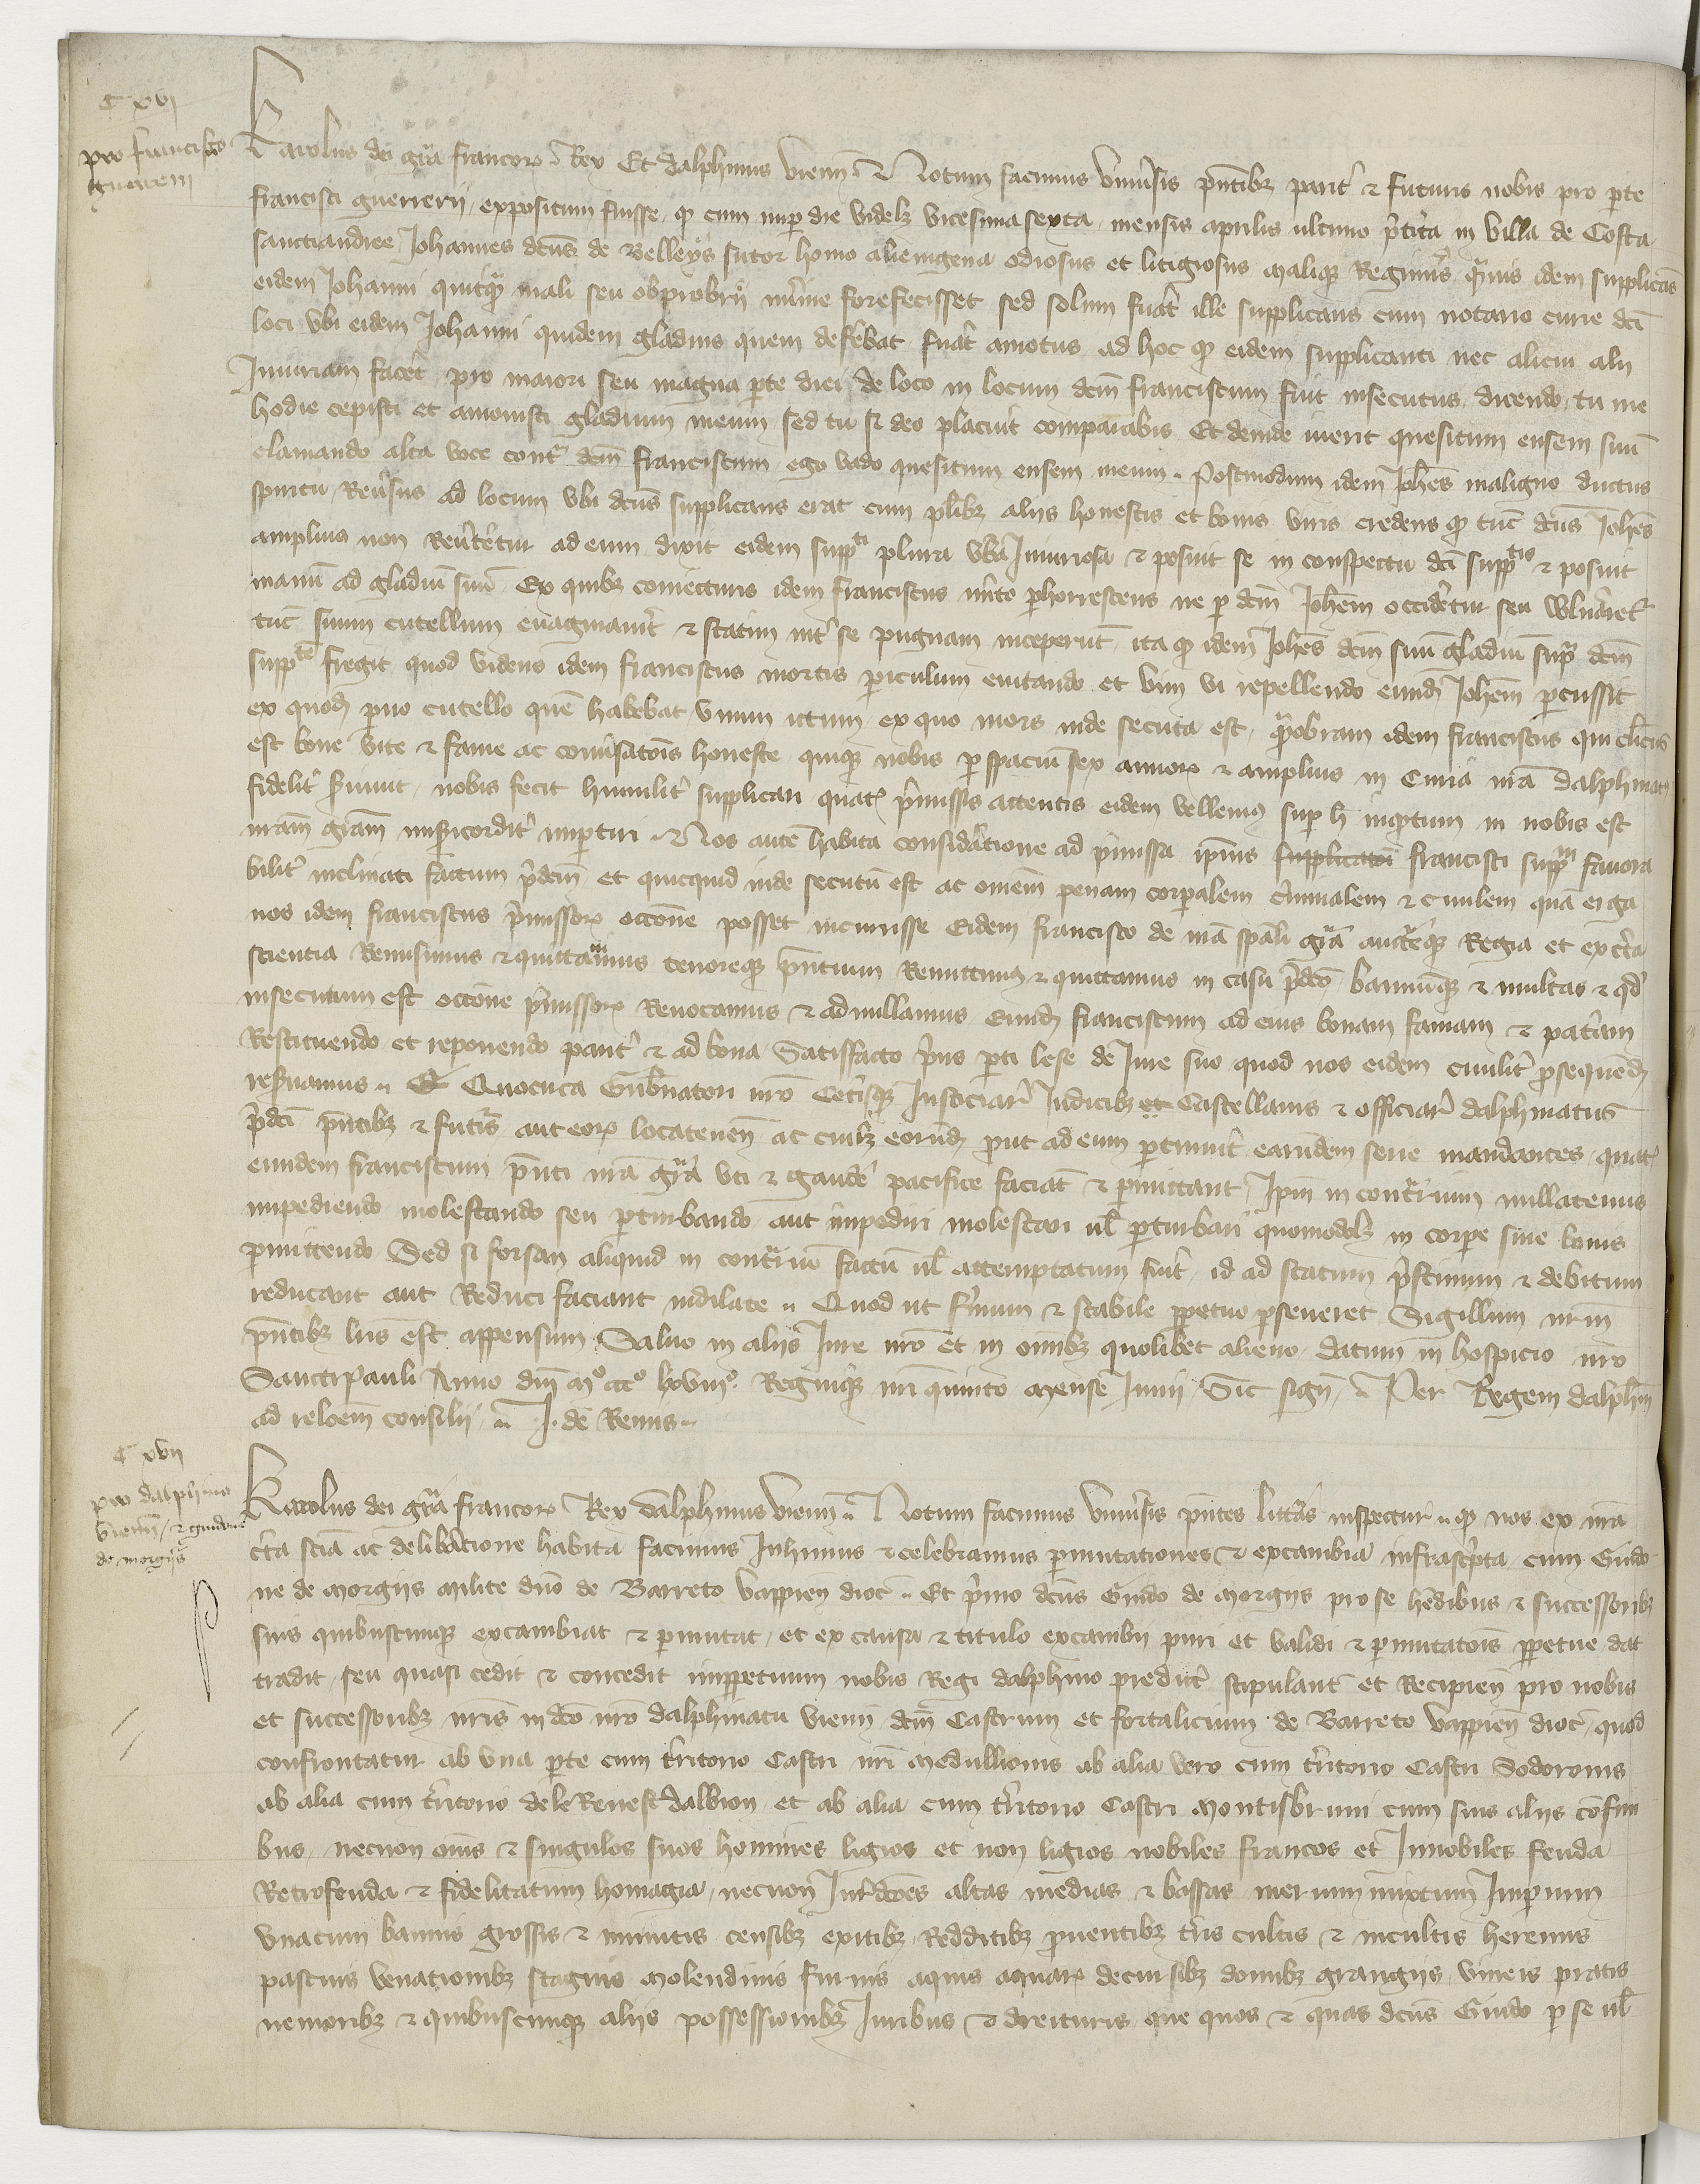 C xvi
pro francisco
guererii
Karolus dei gr̄a francoꝝ Rex Et dalphinus vienn̄ ⁊ Notum facimus vniu̓sis pn̄tibꝫ parit̓ ⁊ futuris nobis pro ꝑte
francisci guererii expositum fuisse ꝙ cum nuꝑ die videlꝫ vicesimasexta mensis aprilis ultimo p̓terita in villa de Costa
sanctiandree Johannes dc̄us de Belleys sutor homo alienigena odiosus et litigiosus maliqꝫ Regiminis qᵃmuis idem supplicās
eidem Johanni quitqᵃꝫ mali seu obprobrii mīme forefecisset sed solum fuāt ille supplicans cum notario curie dc̄i
loci vbi eidem Johanni quidem gladius quem defērebat fuāt amotus ad hoc ꝙ eidem supplicanti nec alicui alii
Iniuriam facēt pro maiori seu magna ꝑte diei de loco in locum dc̄m franciscum fuit insecutus dicendo tu me
hodie cepisti et amouisti gladium meum sed tu si deo placuit comparabis Et deinde iuerit quesitum ensem suū
clamando alta voce contᵃ dc̄m franciscum ego vado quesitum ensem meum . Postmodum idem Joh̄es maligno ductus
spiritu Reu̓sus ad locum vbi dc̄us supplicans erat cum pl̓ibꝫ aliis honestis et bonis viris credens ꝙ tūc dc̄us Joh̄es
amplius non Reu̓tet̓ur ad eum dixit eidem suppᵗⁱ plura v̓ba Iniuriosa ⁊ posuit se in conspectu dc̄i suppᵗⁱˢ ⁊ posuit
manū ad gladiū suū Ex quibꝫ coniecturis idem franciscus mīto ꝑhorrescens ne ꝑ dc̄m Joh̄em occidēr̄tur seu wln̄er̄etur
tūc suum cutellum euaginauit̓ ⁊ statim int̓ se pugnam inceperūt ita ꝙ idem Joh̄es dc̄m suū gladiū supᵃ dc̄m
suppᵗᵉ fregit quod videns idem franciscus mortis ꝑiculum euitando et vim vi repellendo eundꝫ Joh̄em ꝑcussit
ex quodꝫ ꝑuo cutello quē habebat vnum ictum ex quo mors inde secuta est qᵃobram idem franciscus qui cl̓icus
est bone vite ⁊ fame ac conu̓satōis honeste quiqꝫ nobis ꝑ spaciū sex annoꝝ ⁊ amplius in Curia nr̄a dalphinatꝰ
fidelit̓ seruiuit nobis fecit humilit̓ supplicari quatꝰ p̓missis attentis eidem vellemꝰ suꝑ h̄ inqᵃtum in nobis est
nr̄am grām mis̓icordit̓ imꝑtiri . Nos autē habita consid̓atione ad p̓missa ip̄ius ~~supplicatoī~~ francisci suppᵗⁱˢ fauora
bilit̓ inclinati factum p̓dc̄m et quicquid inde secutū est ac om̄em penam corꝑalem c̓minalem ⁊ ciuilem quā erga
nos idem franciscus p̓missoꝝ occ̄one posset incurrisse Eidem francisco de nr̄a spāli gr̄a auct̄eqꝫ Regia et ex c̓ta
scientia Remisimus ⁊ quittauimus tenoreqꝫ pn̄tium Remittimꝰ ⁊ quittamus in casu p̓dc̄o bannūqꝫ ⁊ multas ⁊ qᵈ
insecutum est occōne p̓missoꝝ Reuocamus ⁊ adnullamus eundꝫ franciscum ad eius bonam famam ⁊ pat̓am
Restituendo et reponendo parit̓ ⁊ ad bona Satisfacto p̓us ꝑti lese de Iure suo quod nos eidem ciuilit̓ ꝓsequēdꝫ
res̓uamus . Quocirca Gub̓natori nr̄o Cetisqꝫ Iusticiar̓ Iudicibꝫ et Castellanis ⁊ officiar̓ dalphinatus
p̓dc̄i pn̄tibꝫ ⁊ futis aut eoꝝ locatenen̄ ac cuilꝫ eorūdꝫ put ad eum ꝑtinuit̓ earundem serie mandantes quatꝰ
eundem franciscum pn̄ti nr̄a gr̄a vti ⁊ gaudē pacifice faciāt ⁊ ꝑmittant Ip̄m in contᵃrium nullatenus
impediendo molestando seu ꝑturbando aut impediri molestari ul̄ ꝑturbari quomodolꝫ in corꝑe siue bonis
ꝑmittendo Sed si forsan aliquid in contᵃriū factū ul̄ attemptatum fuit̓ id ad statum p̓stinum ⁊ debitum
reducant aut Reduci faciant indilate . Quod ut firmum ⁊ stabile ꝑpetuo ꝑseueret Sigillum nr̄m
pn̄tibꝫ lr̄is est appensum Saluo in aliis Iure nr̄o et in om̄ibꝫ quolibet alieno datum in hospicio nr̄o
Sanctipauli Anno dn̄i Mº CCCº lxviijº Regniqꝫ nr̄i quinto Mense Junii Sic sign̄ . Per Regem dalph̄m
ad rel̄oem consilii . J. de Remis .
C xvii
pro dalphino
vienn̄ ⁊ guidone
de morgiis
Karolus dei gr̄a francoꝝ Rex dalphinus vienn̄ . Notum facimus vniu̓sis pn̄tes litt̓as inspectur̓ . ꝙ nos ex nr̄a
c̓ta scīa ac delib̓atione habita facimus Inhimus ⁊ celebramus ꝑmutationes ⁊ excambia infrascᵢpta cum Guido
ne de Morgiis Milite dn̄o de Barreto vappien̄ dioc̄ . Et p̓mo dc̄us Guido de Morgiis pro se h̓edibus ⁊ successoribꝫ
suis quibuscunqꝫ excambiat ⁊ ꝑmutat et ex causa ⁊ titulo excambii puri et validi ⁊ ꝑmutatōis ꝑpetue dat
tradit seu quasi cedit ⁊ concedit imꝑpetuum nobis Regi dalphino predict̓ stipulant̄ et Recipien̄ pro nobis
et successoribꝫ nr̄is in dc̄o nr̄o dalphinatu vienn̄ dc̄m Castrum et fortalicium de Barreto vappien̄ dioc̄ quod
confrontatur ab vna ꝑte cum t̓ritorio Castri nr̄i Medullionis ab alia vero cum t̓ritorio Castri Sodoronis
ab alia cum t̓ritorio de le Reuest dalbion et ab alia cum t̓ritorio Castri Montisbruni cum suis aliis cōfini
bus necnon om̄s ⁊ singulos suos homines ligios et non ligios nobiles francos et Innobiles feuda
Retrofeuda ⁊ fidelitatum homagia necnon Iur̄dc̄oes altas medias ⁊ bassas merum mixtum Imꝑium
vnacum bannis grossis ⁊ minutis censibꝫ exitibꝫ Redditibꝫ ꝓuentibꝫ t̓ris cultis ⁊ incultis heremis
pascuis venationibꝫ stagnis Molendinis furnis aquis aquaꝝ decursibꝫ domibꝫ grangiis vineis pratis
nemoribꝫ ⁊ quibuscunqꝫ aliis possessionibꝫ Iuribus ⁊ dreituris que quos ⁊ quas dc̄us Guido ꝑ se ul̄